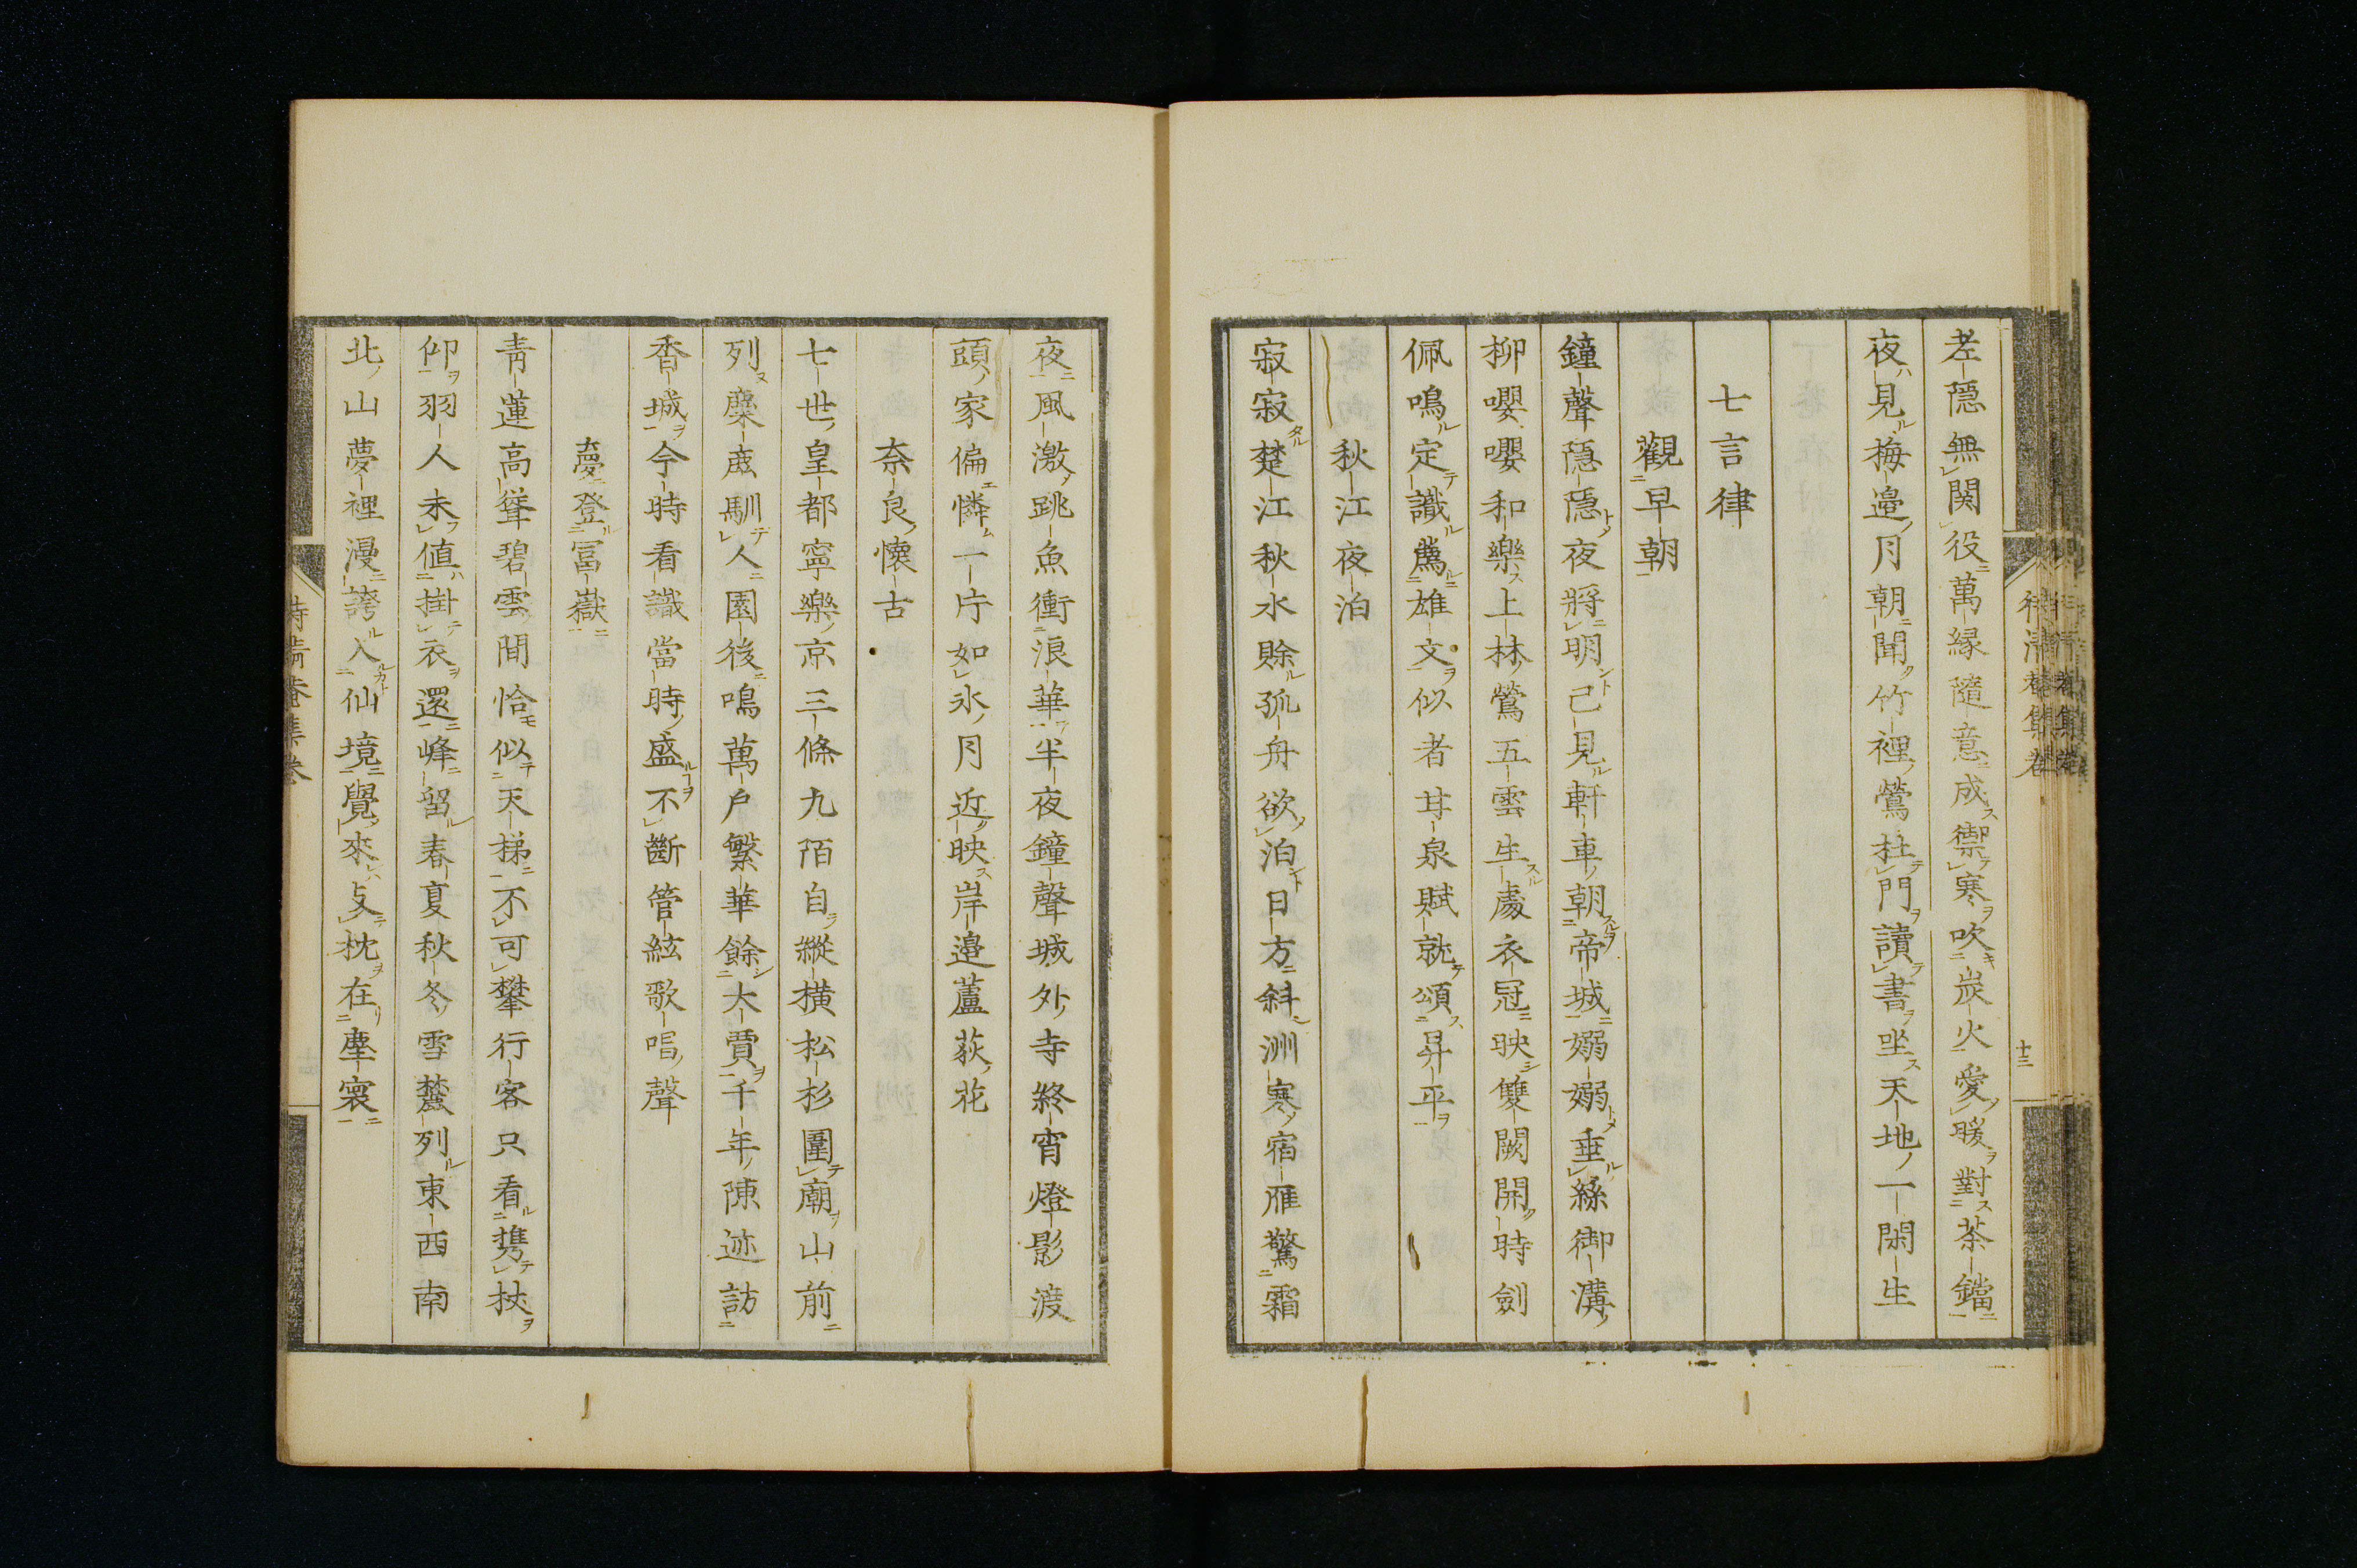 老隱無関役萬縁隨意成禦寒吹炭火愛暖對茶鐺
夜見梅邉月朝聞竹裡鶯杜門讀書坐天地一閑生
七言律
觀早朝
鐘聲隱隱夜將明已見軒車朝帝城嫋嫋垂絲御溝
柳嚶嚶和樂上林鶯五雲生處衣冠映雙闕開時劍
佩鳴定識薦雄文似者甘泉賦就頌昇平
秋江夜泊
寂寂楚江秋水賒孤舟欲泊日方斜洲寒宿雁驚霜
十三
夜風激跳魚衝浪華半夜鐘聲城外寺終宵燈影渡
頭家偏憐一片如氷月近映岸邉蘆荻花
奈良懷古
七世皇都寧樂京三條九陌自縱横松杉圍廟山前
列麋鹿馴人園後鳴萬戸繁華餘大賈千年陳迹訪
香城今時看識當時盛不斷管絃歌唱聲
夢登冨嶽
青蓮高聳碧雲間恰似天梯不可攀行客只看携杖
仰羽人未値掛衣還峰留春夏秋冬雪麓列東西南
北山夢裡漫誇入仙境覺來支枕在塵寰